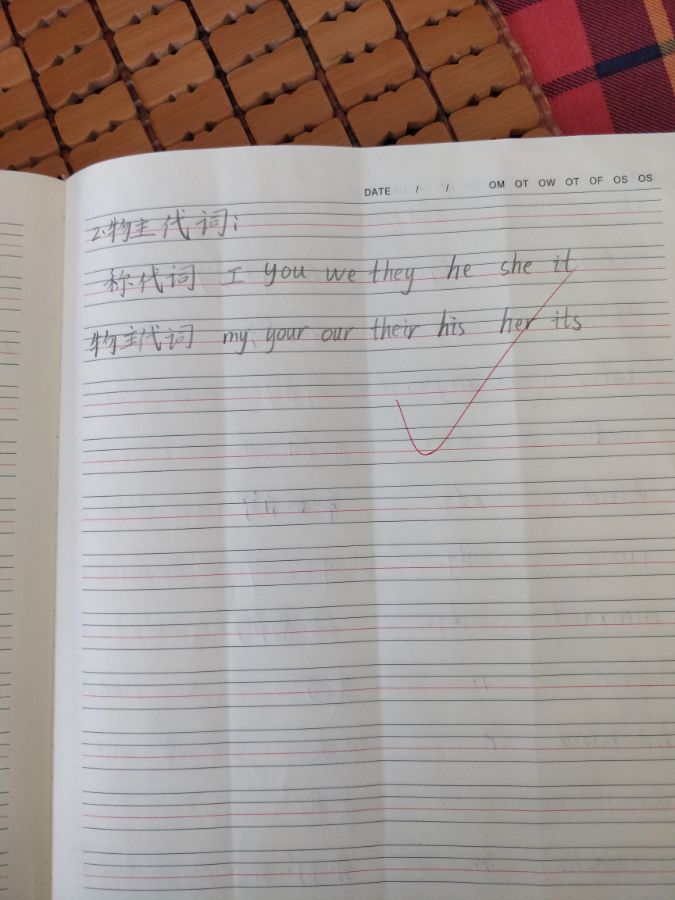 DATE / / OM OT OW OT OF OS OS
2.物主代词:
称代词 I you we they he she it
物主代词 my your our their his her its